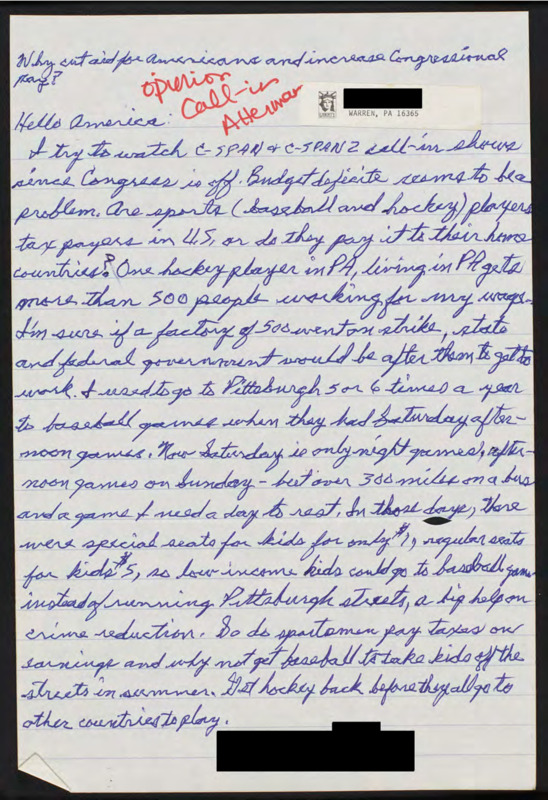 Why cut aid for Americans and increase Congressional
pay?
opinion
Call-in
Hello America:
WARREN, PA 16365
I try to watch C-SPAN & C-SPAN 2 call-in shows
since Congress is off. Budget deficite seems to be a
problem. Are sports (baseball and hockey) players
tax payers in U.S, or do they pay it to their home
countries? One hockey player in PA, living in PA gets
more than 500 people working for my wage.
I'm sure if a factory of 500 went on strike, state
and federal government would be after them to get to
work. I used to go to Pittsburgh 5 or 6 times a year
to baseball games when they had Saturday after-
noon games. Now Saturday is only night games, after-
noon games on Sunday - but over 300 miles on a bus
and a game I need a day to rest. In those days, there
were special seats for kids for only $1, regular seats
for kids $5, so low income kids could go to baseball game
instead of running Pittsburgh streets, a big help on
crime reduction. So do sportsmen pay taxes on
earnings and why not get baseball to take kids off the
streets in summer. Get hockey back before they all go to
other countries to play.